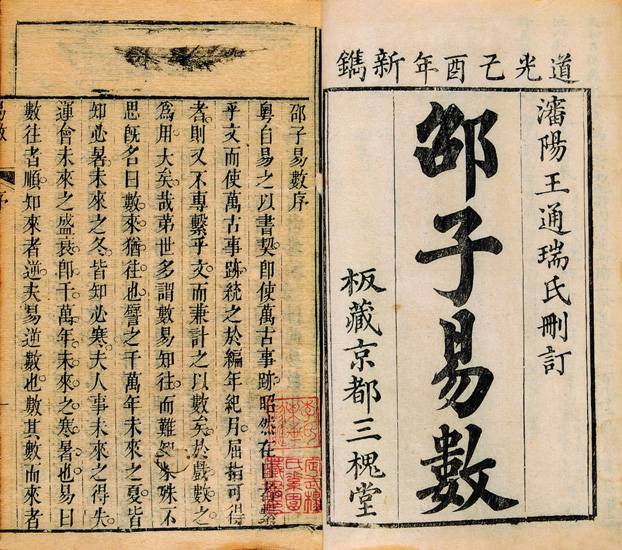 道光己酉年新鐫
瀋陽王通瑞氏刪訂
邵子易數
板藏京都三槐堂
邵子易數序
粵自易之以書契即使萬古事跡昭然在目者繫
乎文而使萬古事跡統之於編年紀月屈指可得
者則又不專繫乎文而兼計之以數矣於戲數之
爲用大矣哉第世多謂數易知往而難知來殊不
思旣名曰數來猶往也譬之千萬年未來之夏皆
知必暑未來之冬皆知必寒夫人事未來之得失
運會未來之盛衰卽千萬年未來之寒暑也易曰
數往者順知來者逆夫易逆數也數其數而來者
易數 序